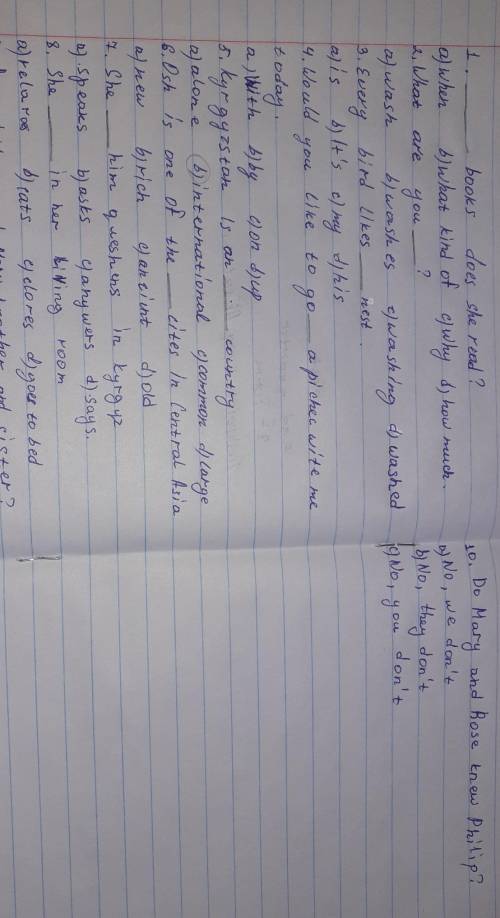 1. ____ books does she read?
a) when b) what kind of c) why d) how much.
2. What are you ____ ?
a) wash b) washes c) washing d) washed
3. Every bird likes ____ nest.
a) is b) It's c) my d) his
4. Would you like to go ____ a picnec wite me
today.
a.) With b) by c) on d) up
5. Kyrgyzstan is an ____ country
a) alone b) international c) common d) large
6. Osh is one of the ____ cites in Central Asia
a) new b) rich c) encint d) old
7. She ____ him queshens in kyrgyz
a) Speaks b) asks c) anywers d) says.
8. She ____ in her living room
a) relaxas b) rats c) dores d) goes to bed
brother and sister?
10. Do Mary and Rose knew Philip?
a) No, we don't
b) No, they don't
c) No, you don't